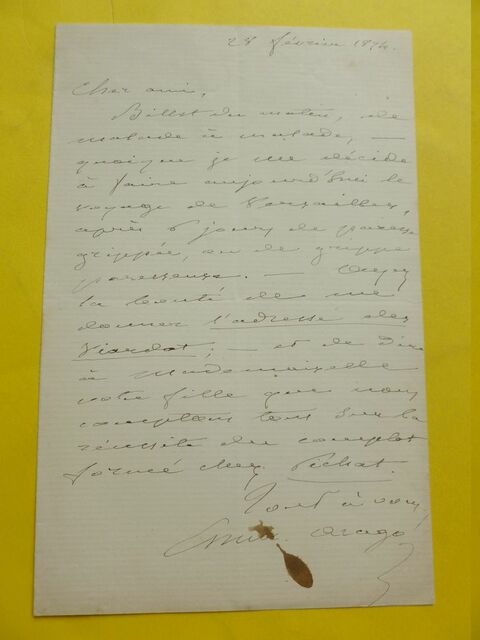 28 février 1874.
Cher ami,
Billet du matin, de
malade à malade, —
quoique je me décide
à faire aujourd'hui le
voyage de Versailles,
après 6 jours de paresse
grippée, ou de grippe
paresseuse. — Ayez
la bonté de me
donner l'adresse des
Viardot; — et de dire
à Mademoiselle
votre fille que nous
comptons tous sur la
réussite du complot
formé chez Pichat.
Tout à vous,
Emm. Arago